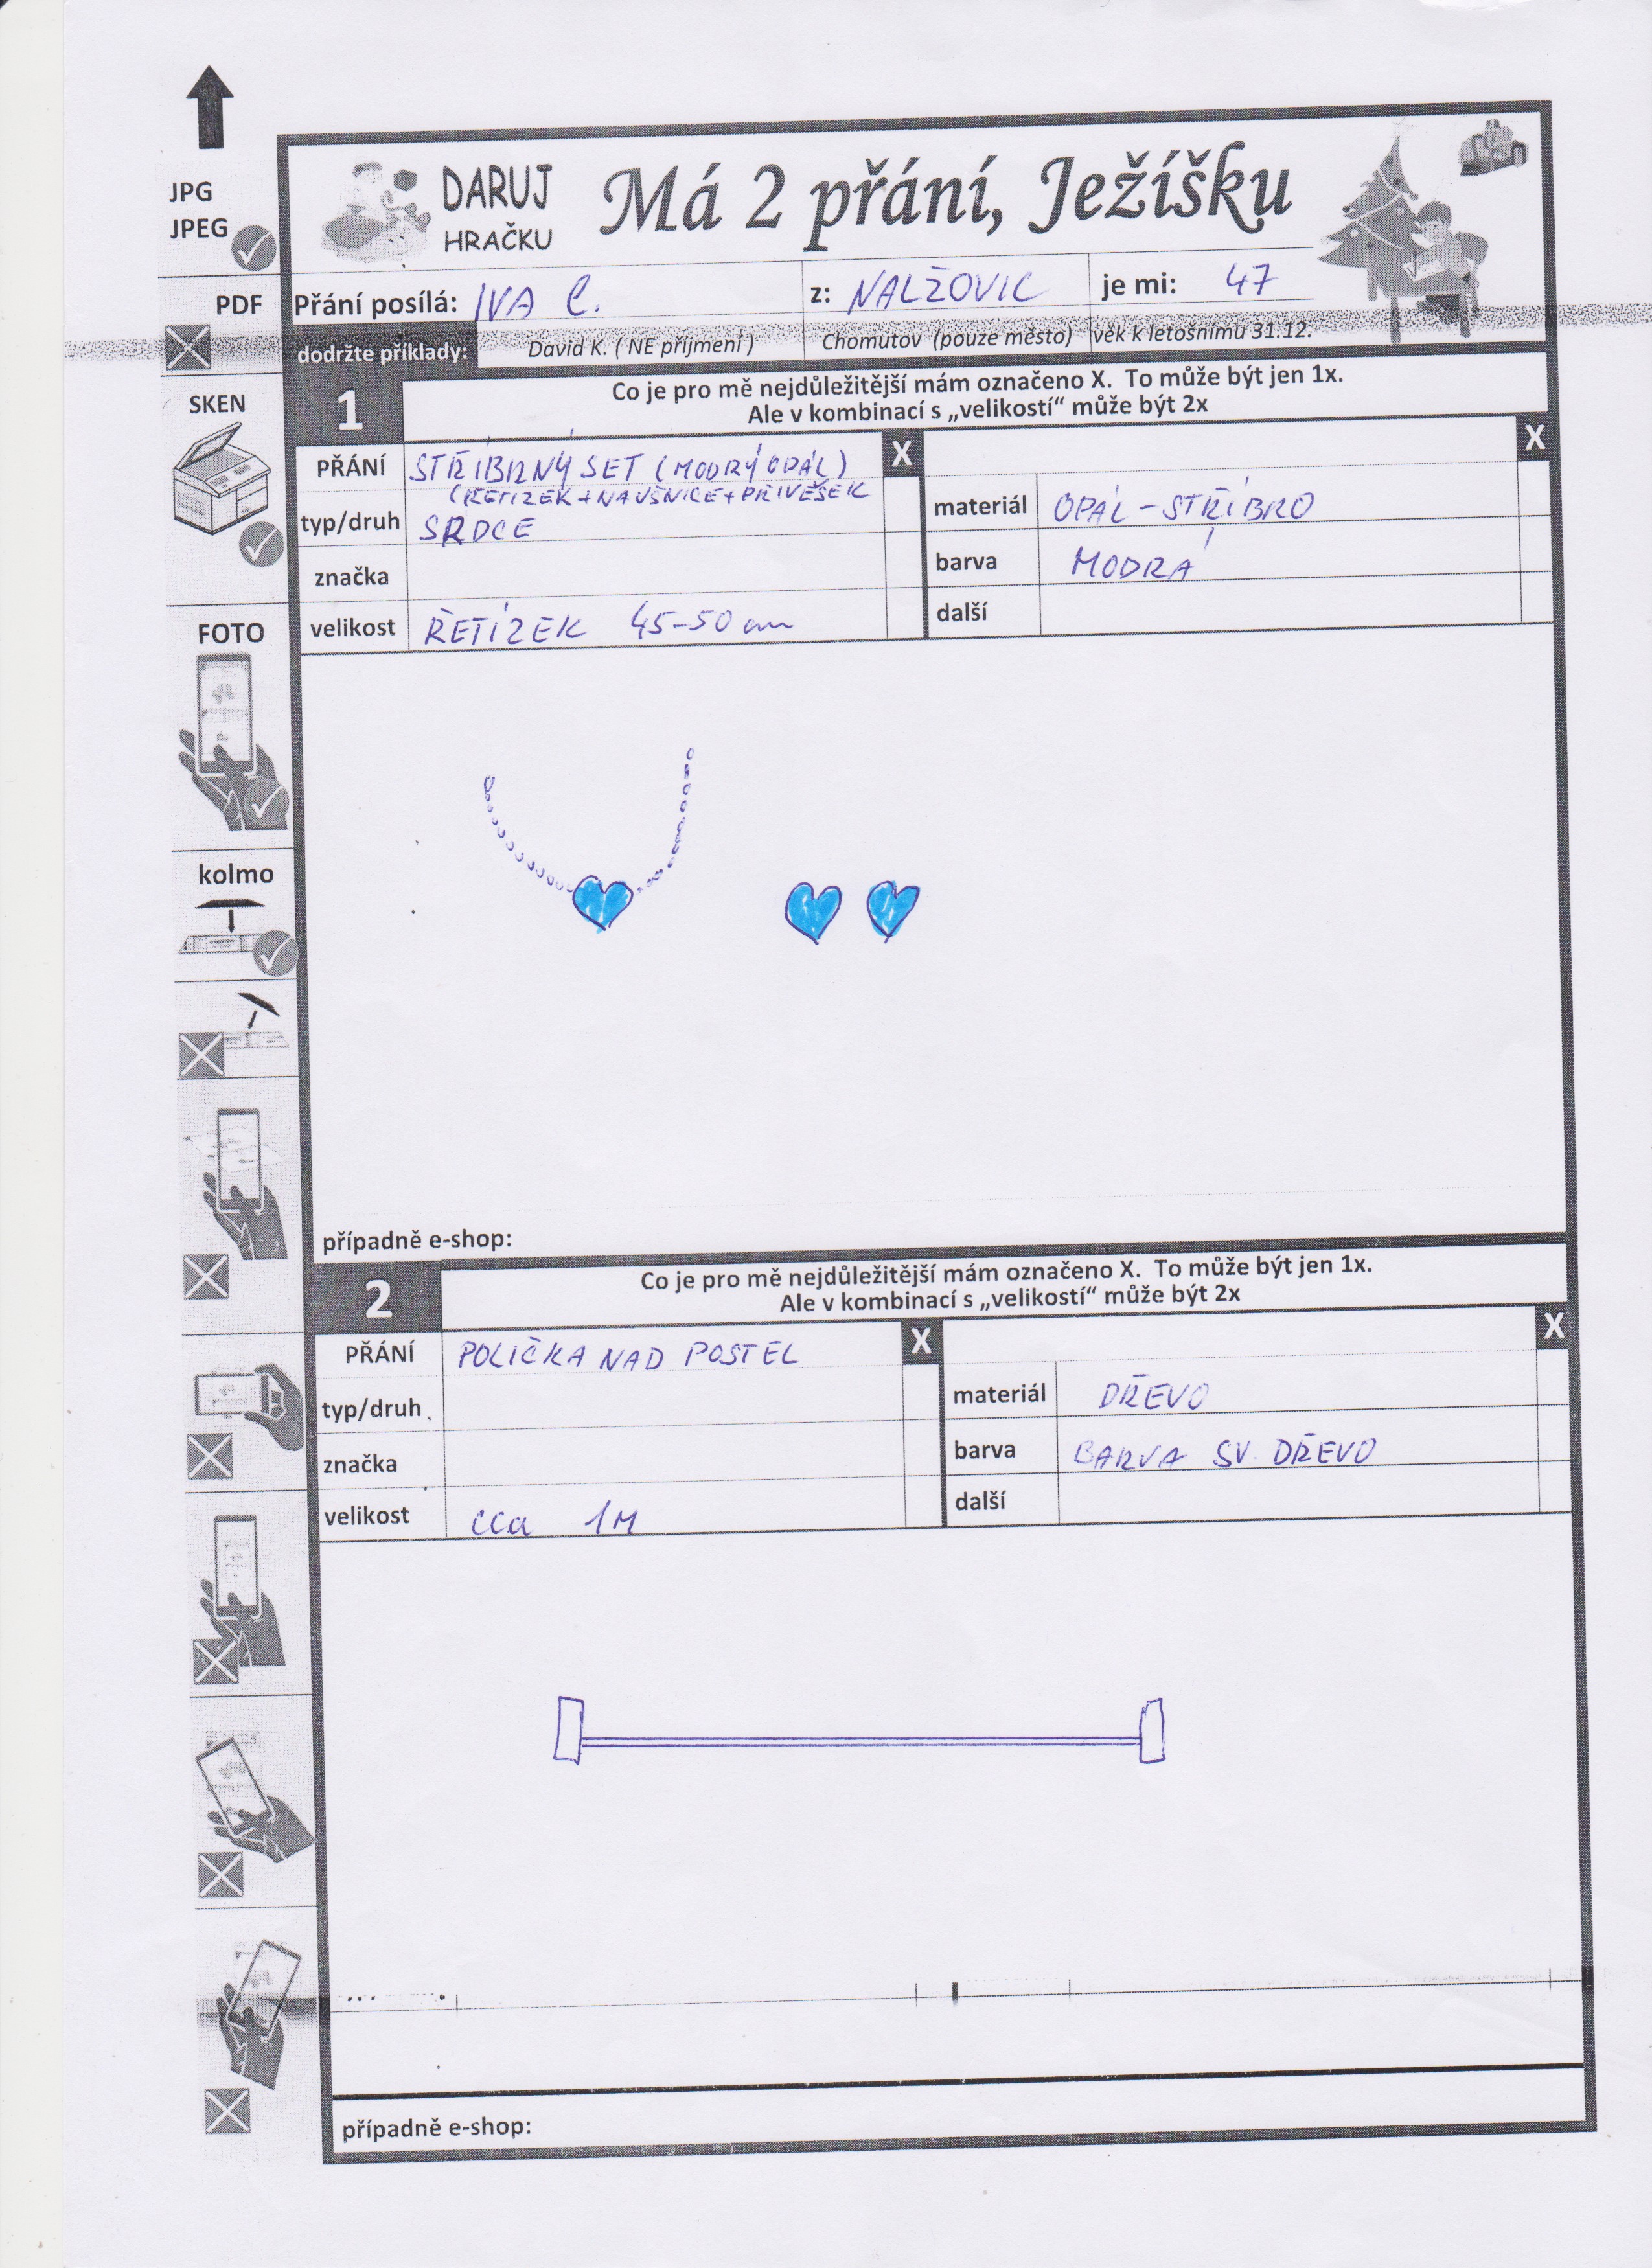 JPG
JPEG
PDF
SKEN
FOTO
kolmo
DARUJ
HRAČKU
Má 2 přání, Ježíšku
Přání posílá: IVA C. z: NALŽOVIC je mi: 47
dodržte příklady: David K. ( NE příjmení ) Chomutov (pouze město) věk k letošnímu 31.12.
1
Co je pro mě nejdůležitější mám označeno X. To může být jen 1x.
Ale v kombinací s „velikostí“ může být 2x
PŘÁNÍ STŘÍBRNÝ SET (MODRÝ OPÁL) X X
(ŘETÍZEK + NAUŠNICE + PŘÍVĚŠEK
typ/druh SRDCE materiál OPÁL - STŘÍBRO
značka barva MODRÁ
velikost ŘETÍZEK 45-50 cm další
případně e-shop:
2
Co je pro mě nejdůležitější mám označeno X. To může být jen 1x.
Ale v kombinací s „velikostí“ může být 2x
PŘÁNÍ POLIČKA NAD POSTEL X X
typ/druh materiál DŘEVO
značka barva BARVA SV. DŘEVO
velikost cca 1M další
případně e-shop: